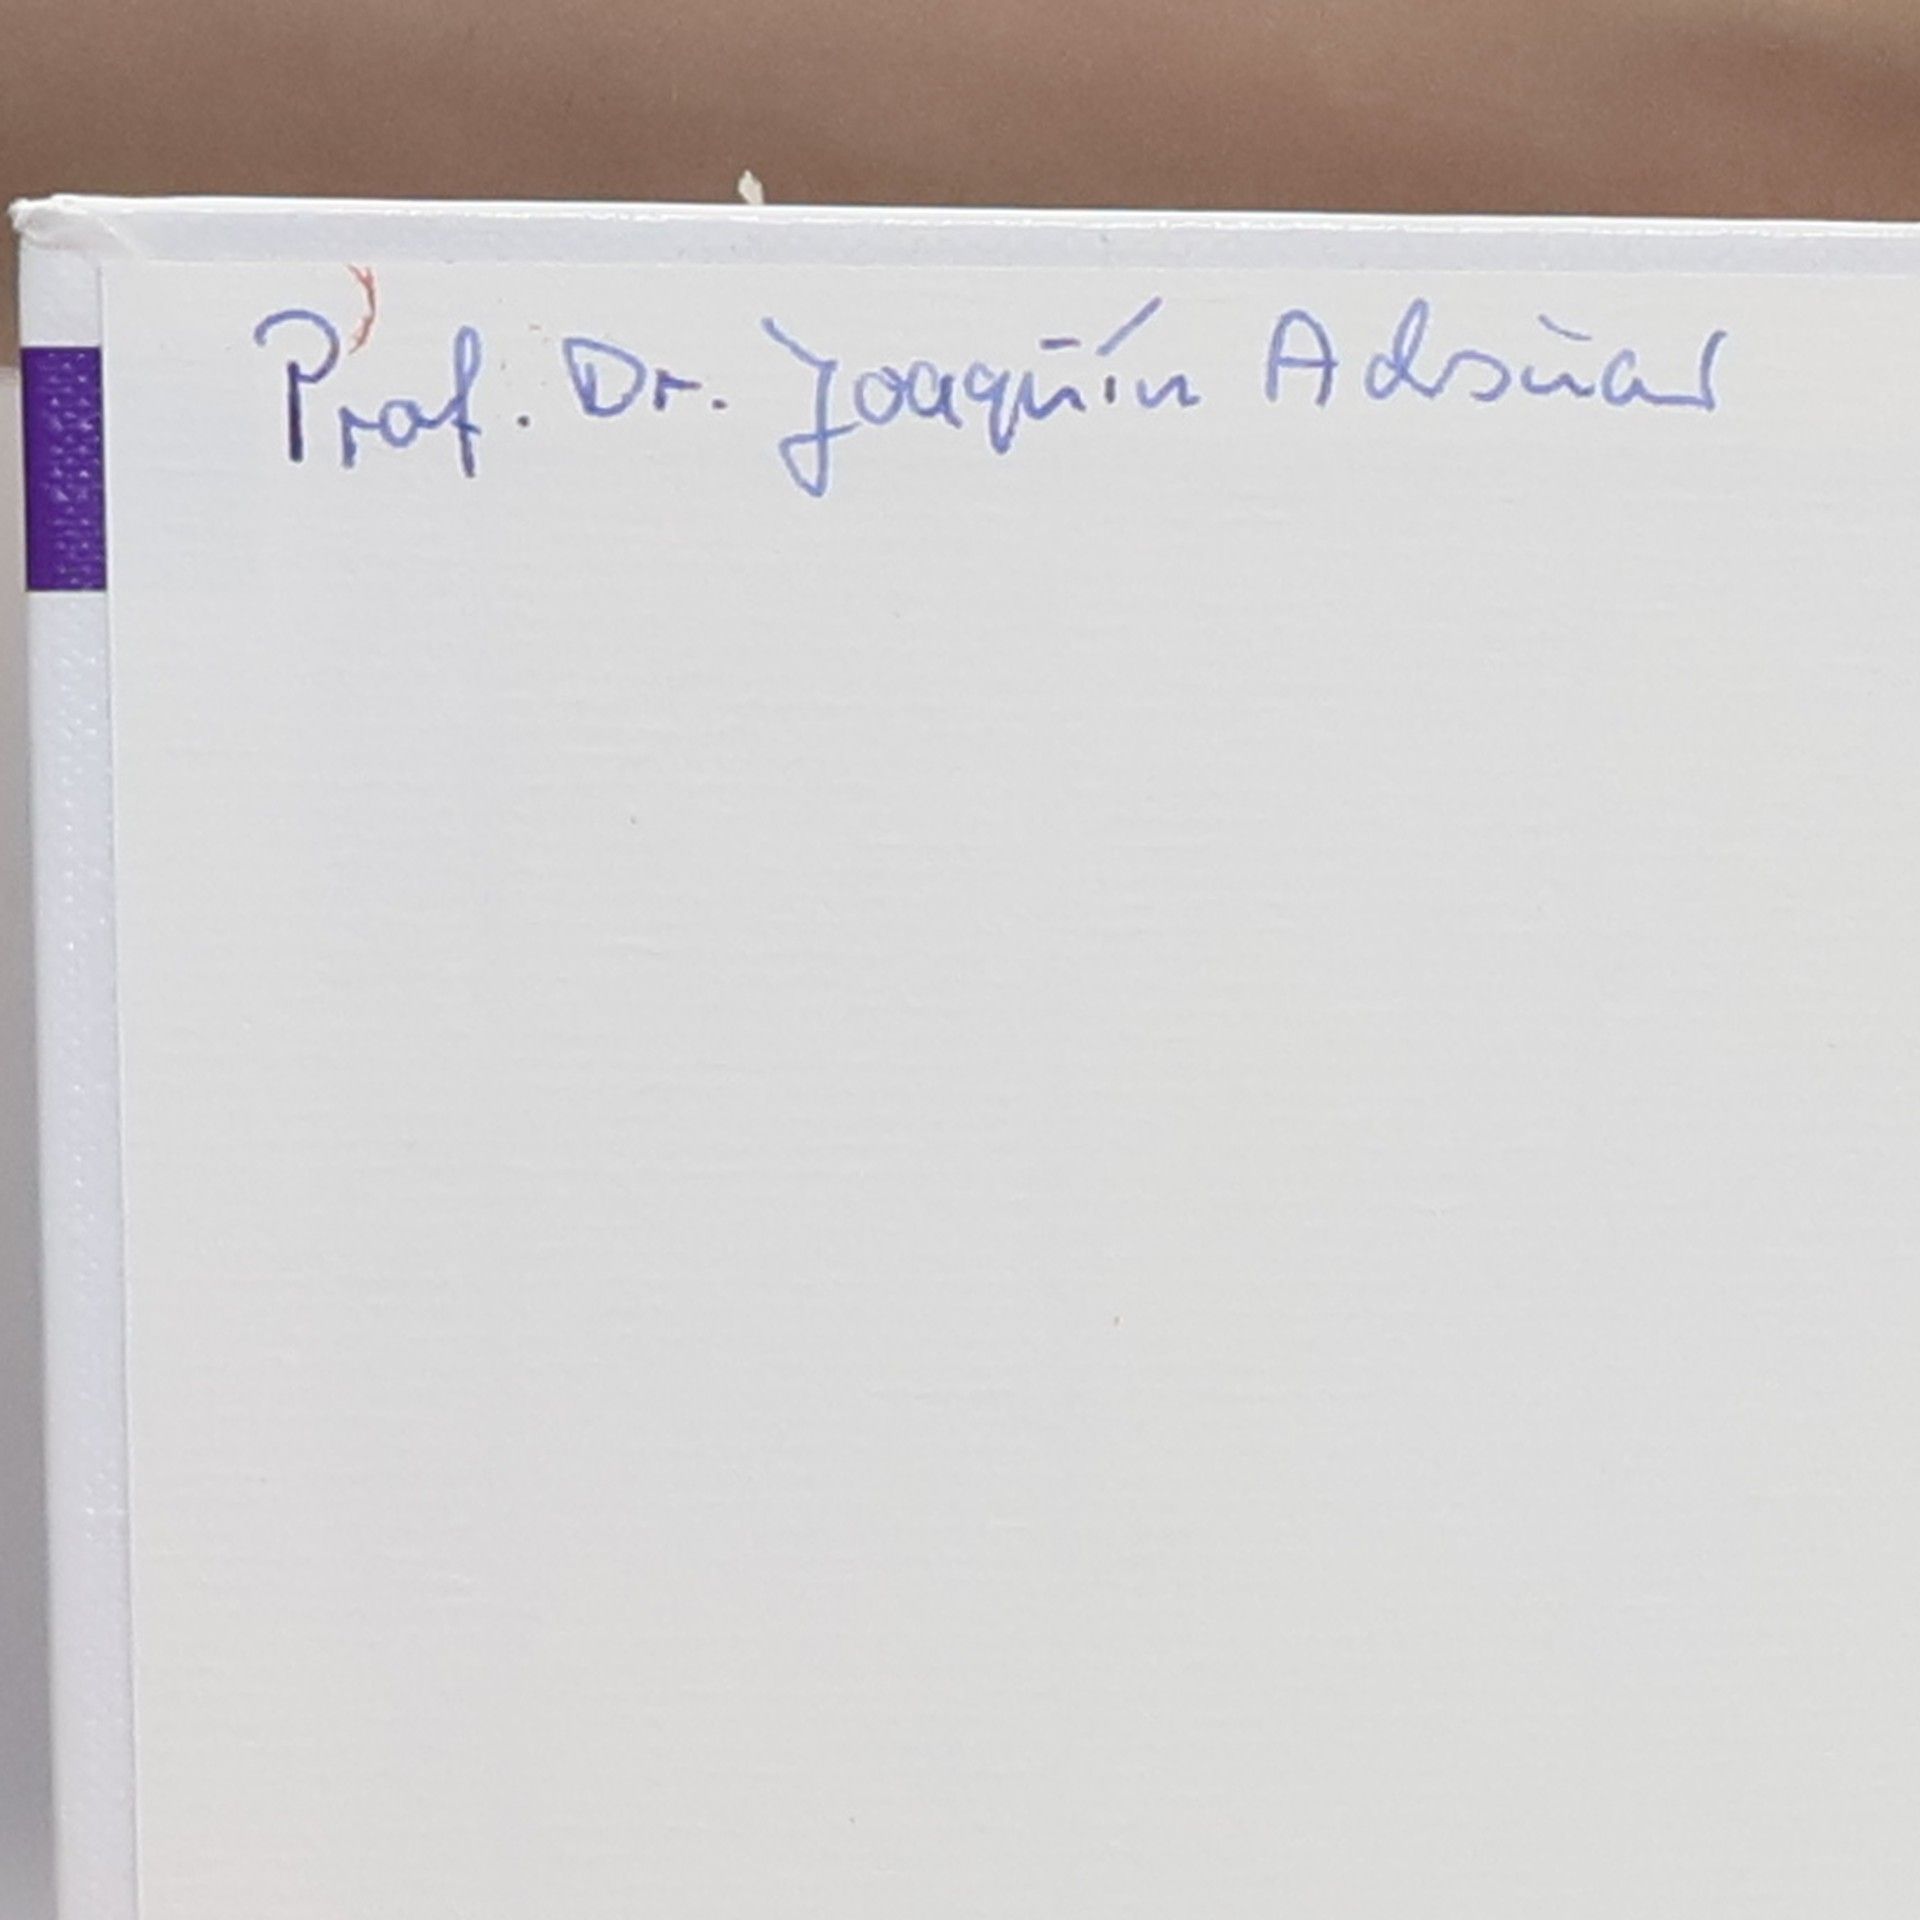 Prof. Dr. Joaquín Adsuar